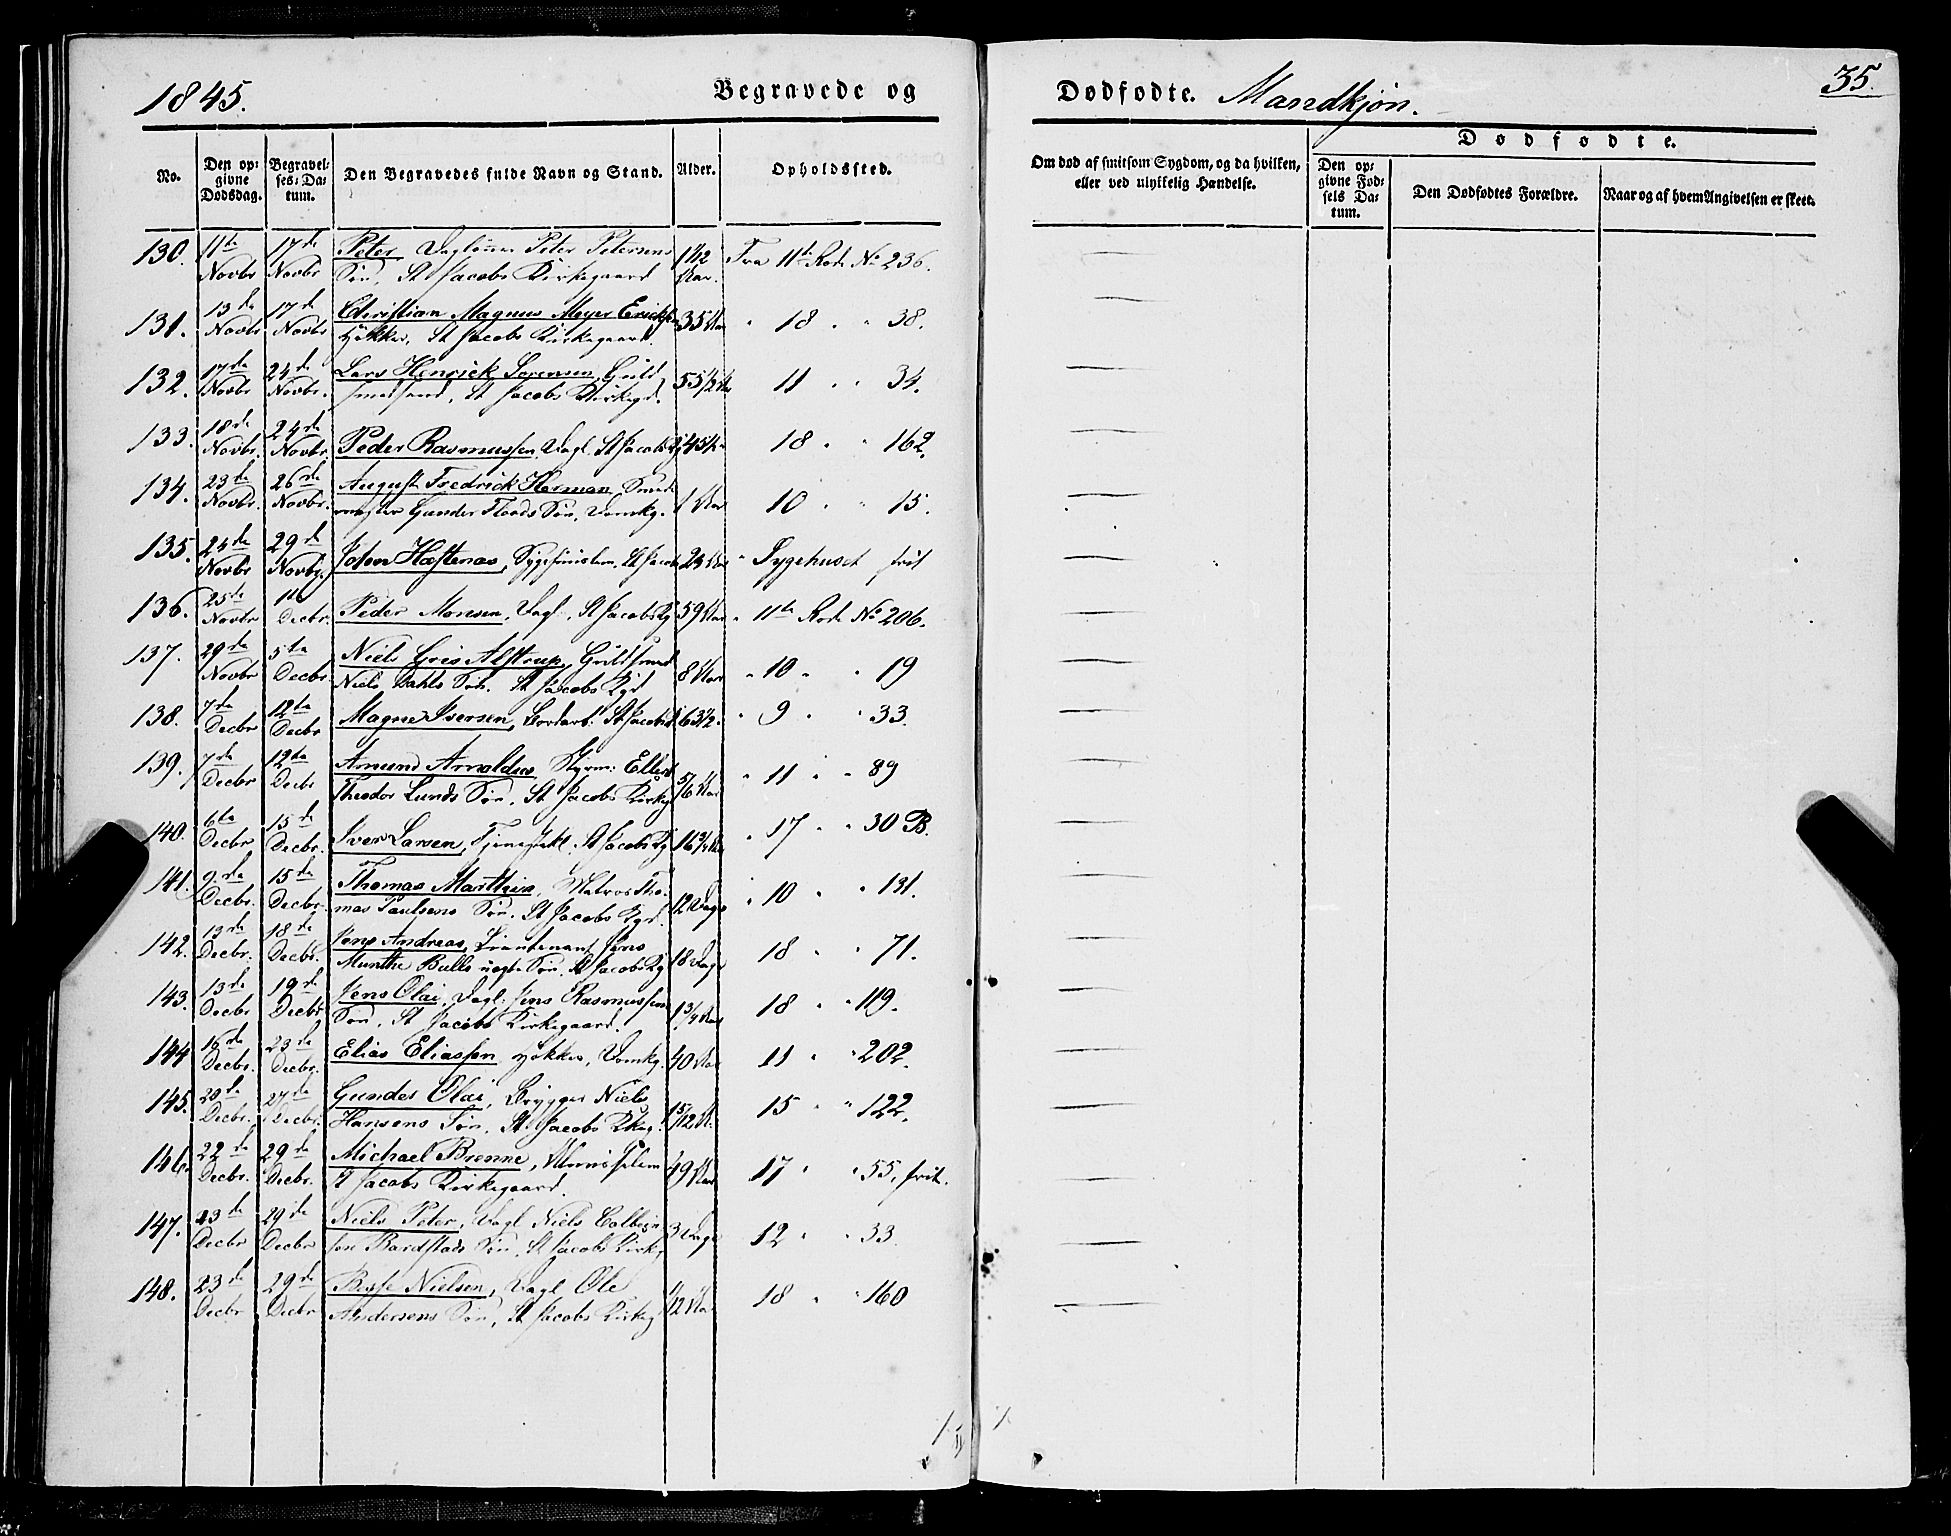 1845.
Begravede og
Dødfødte. Mandkjøn.
35.
No.
Den op-
givne
Dødsdag.
Begravel-
ses-Da-
tum.
Den Begravedes fulde Navn og Stand.
Alder.
Opholdssted.
Om død af smitsom Sygdom, og da hvilken,
eller ved ulykkelig Hændelse.
Dødfødte.
Den op-
givne Fød-
sels Da-
tum.
Den Dødfødtes Forældre.
Naar og af hvem Angivelsen er skeet.
130. 11te 17de Peter, Peter Petersens
Novbr Novbr Søn, St Jacobs Kirkegaard 1 1/2 Aar. Fra 11te Rode No 236.
131. 13de 17de Christian Magnus Meyer Ericksen
Novbr Novbr Høkker, St Jacobs Kirkegaard. 35 Aar " 18 " " 38.
132. 17de 24de Lars Henrick Sørensen, Guld
Novbr Novbr. smedsvend, St Jacobs Kirkegd. 55 1/2 Aar 11 " " 34.
133. 18de 24de
Novbr. Novbr. Peder Rasmussen, Dagl. St Jacobs Kg 45 18 " " 162.
134. 23de 26de August Fredrick Herman, Smede
Novbr. Novbr. mester Gunder Floods Søn, Domkg. 1 Aar 10 " " 15.
135. 24de 29de
Novbr Novbr. John Hæstenæs, St Jacobs 29 Aar " Sygehuset frit
136. 25de 1te
Novbr Decbr. Peder Monsen, Dagl., St Jacobs Kg 59 Aar " 11te Rode No 206.
137. 29de 5te Niels Gris Alstrup, Guldsmed
Novbr Decbr. Niels Dahls Søn. St Jacobs Kgd 8 Aar " 10 " " 19
138. 7de 12te
Decbr Decbr Magne Iversen, St Jacobs 63 1/2 " 9 " 33.
139. 7de 12te Amund Arnoldus, Styrm: Ellert
Decbr Decbr Theodor Lunds Søn, St Jacobs Kirkeg 5/6 Aar " 11 " " 89
140. 6te 15de
Decbr Decbr. Iver Larsen, St Jacobs Kg 16 3/4 Aar " 17 " " 30 B.
141. 9de 15de Thomas Marthin, Matros Tho-
Decbr. Decbr. mas Paulsens Søn. St Jacobs Kgd. 12 Dage " 10 " " 131.
142. 13de 18de Jens Andreas, Lieutenant Jens
Decbr. Decbr. Munthe Bulls uægte Søn, St Jacobs Kg 18 Dage 18 " " 71.
143. 13de 19de Jens Olai, Dagl. Jens Rasmussen
Decbr Decbr Søn, St Jacobs Kirkegaard. 1 3/4 Aar 18 " " 119.
144 16de 23de
Decbr. Decbr. Elias Eliassen Høkker, Domkg. 40 Aar 11 " " 202.
145. 20de 27de Gunder Olai, Brygger Niels
Decbr. Decbr. Hansens Søn, St. Jacobs Kkeg. 15 " " 122.
146. 22de 29de Michael Brenne, Almisselem
Decbr. Decbr. St Jacobs Kirkegaard. 49 Aar 17 " " 55, frit.
147. 23de 29de Niels Peter, Dagl Niels Colbeyn
Decbr Decbr sen Bardstads Søn, St Jacobs Kirkeg 3 Dage 12 " " 33.
148. 23de 29de Nielsen, Dagl Ole
Decbr Decbr Andersens Søn, St Jacobs Kirkeg 18 " " 160